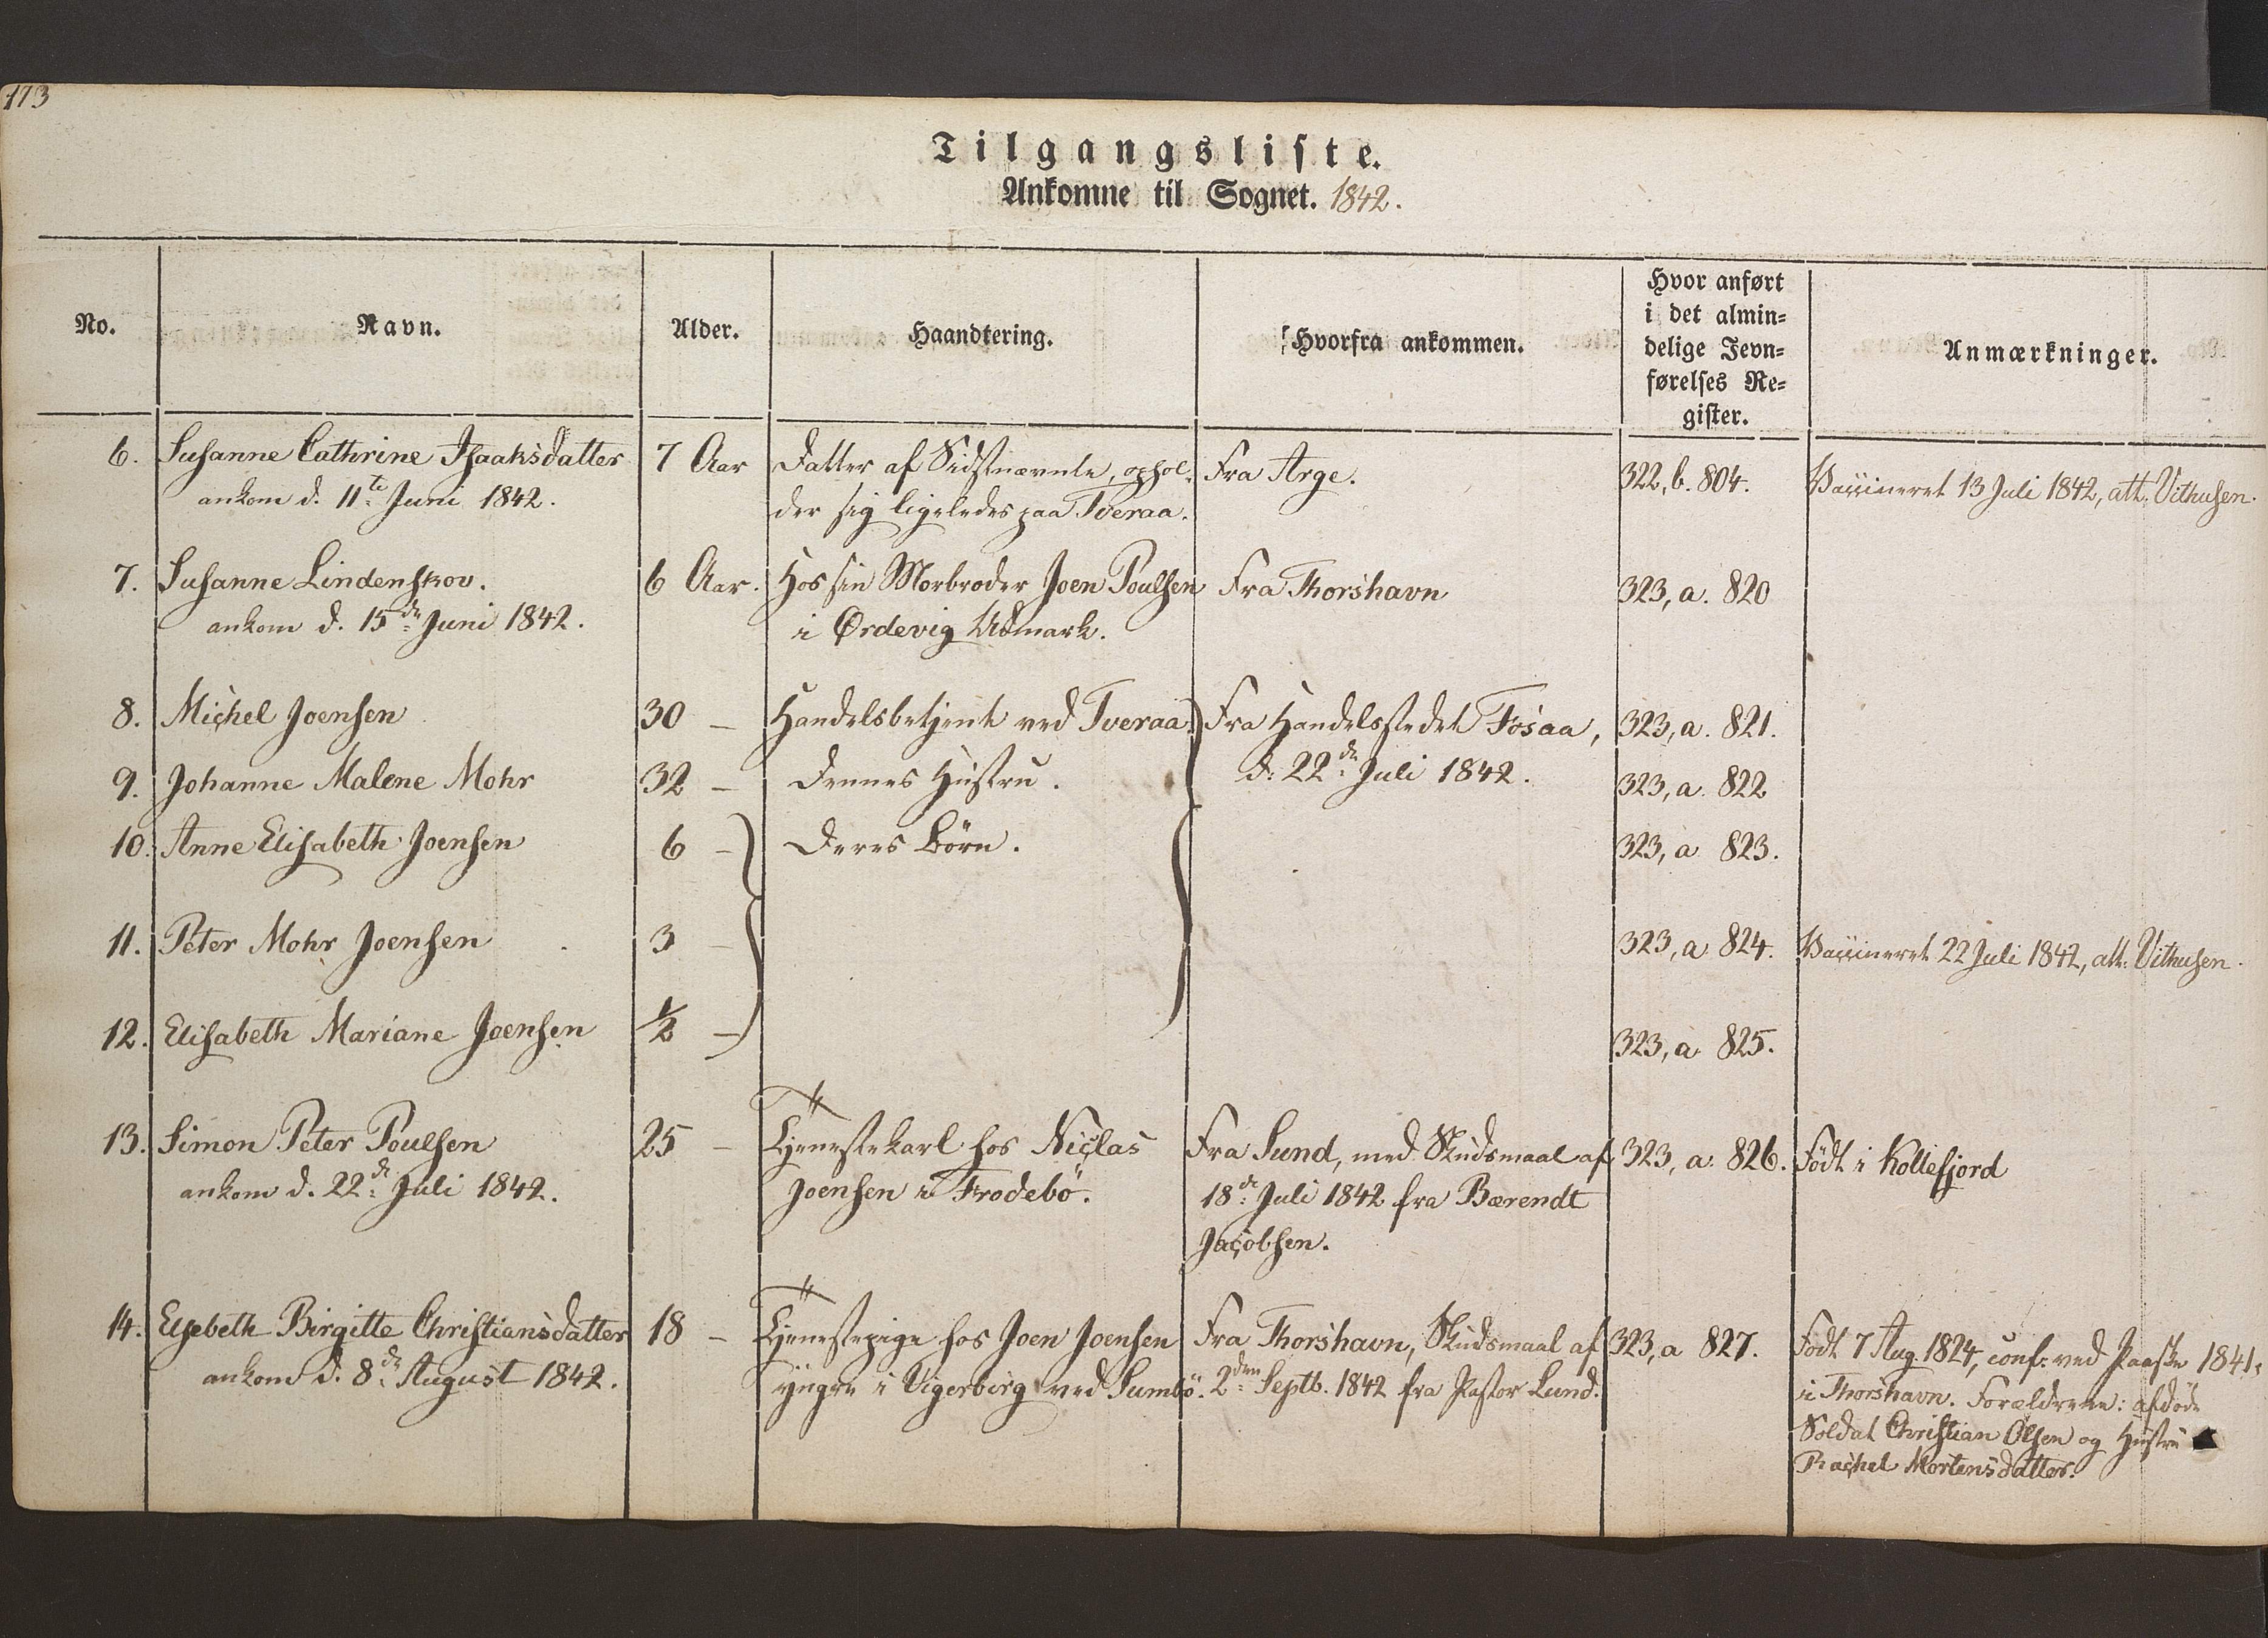 173
Tilgangsliste.
Ankomne til Sognet. 1842.
No. Navn. Alder. Haandtering. Hvorfra ankommen. Hvor anført i det almin= delige Jevn= førelses Re= gister. Anmærkninger.
6. Susanne Cathrine Isaaksdatter 7 Aar Datter af Sidstnævnte, ophol- Fra Arge. 322, b. 804. Vaccineret 13 Juli 1842, att. Vithusen.
ankom d. 11te Juni 1842. der sig ligeledes paa Tveraa.
7. Susanne Lindenskov. 6 Aar. Hos sin Morbroder Joen Poulsen Fra Thorshavn 323, a. 820
ankom d. 15de Juni 1842. i Ørdevig Udmark.
8. Michel Joensen 30 – Handelsbetjent ved Tveraa. Fra Handelsstedet Fosaa, 323, a. 821.
9. Johanne Malene Mohr 32 – Dennes Hustru. d: 22de Juli 1842. 323, a. 822
10. Anne Elisabeth Joensen 6 – Deres Börn. 323, a 823.
11. Peter Mohr Joensen 3 – 323, a. 824. Vaccineret 22 Juli 1842, att: Vithusen.
12. Elisabeth Mariane Joensen ½ – 323, a. 825.
13. Simon Peter Poulsen 25 – Tjenestekarl hos Niclas Fra Sund, med Skudsmaal af 323, a. 826. Födt i Kollefjord
ankom d. 22de Juli 1842. Joensen i Frodebö. 18de Juli 1842 fra Bærendt
Jacobsen.
14. Elsebeth Birgitte Christiansdatter 18 – Tjenestepige hos Joen Joensen Fra Thorshavn, Skudsmaal af 323, a 827. Födt 7 Aug. 1824, conf: ved Paaske 1841,
ankom d. 8de August 1842. yngre i Vigerbirg ved Sumbö. 2den Septb. 1842 fra Pastor Lund. i Thorshavn. Forældrene: afdöde
Soldat Christian Olsen og Hustru
Rachel Mortensdatter.